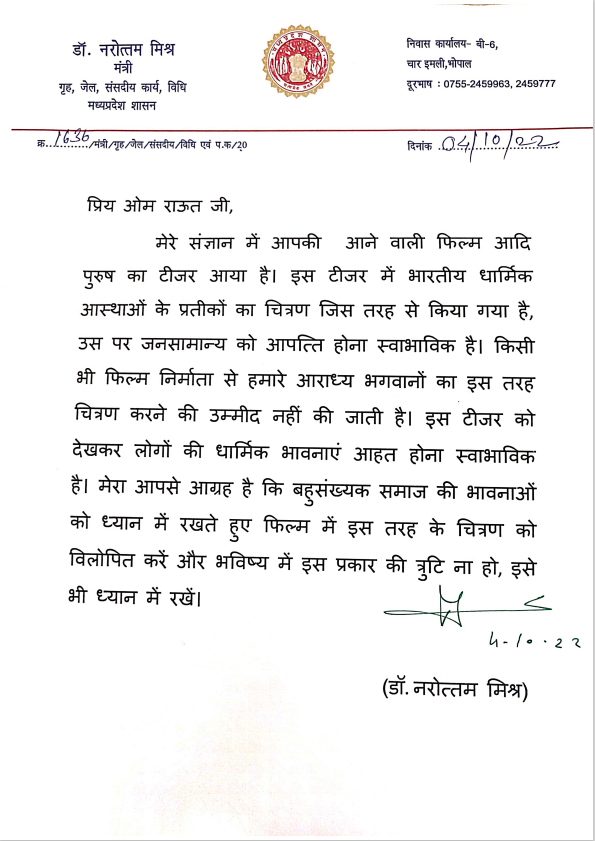 डॉ. नरोत्तम मिश्र
मंत्री
गृह, जेल, संसदीय कार्य, विधि
मध्यप्रदेश शासन
निवास कार्यालय- बी-6,
चार इमली,भोपाल
दूरभाष : 0755-2459963, 2459777
क्र. 1636 /मंत्री/गृह/जेल/संसदीय/विधि एवं प.क/20
दिनांक 04/10/22
प्रिय ओम राऊत जी,
मेरे संज्ञान में आपकी आने वाली फिल्म आदि
पुरुष का टीजर आया है। इस टीजर में भारतीय धार्मिक
आस्थाओं के प्रतीकों का चित्रण जिस तरह से किया गया है,
उस पर जनसामान्य को आपत्ति होना स्वाभाविक है। किसी
भी फिल्म निर्माता से हमारे आराध्य भगवानों का इस तरह
चित्रण करने की उम्मीद नहीं की जाती है। इस टीजर को
देखकर लोगों की धार्मिक भावनाएं आहत होना स्वाभाविक
है। मेरा आपसे आग्रह है कि बहुसंख्यक समाज की भावनाओं
को ध्यान में रखते हुए फिल्म में इस तरह के चित्रण को
विलोपित करें और भविष्य में इस प्रकार की त्रुटि ना हो, इसे
भी ध्यान में रखें।
4-10-22
(डॉ. नरोत्तम मिश्र)